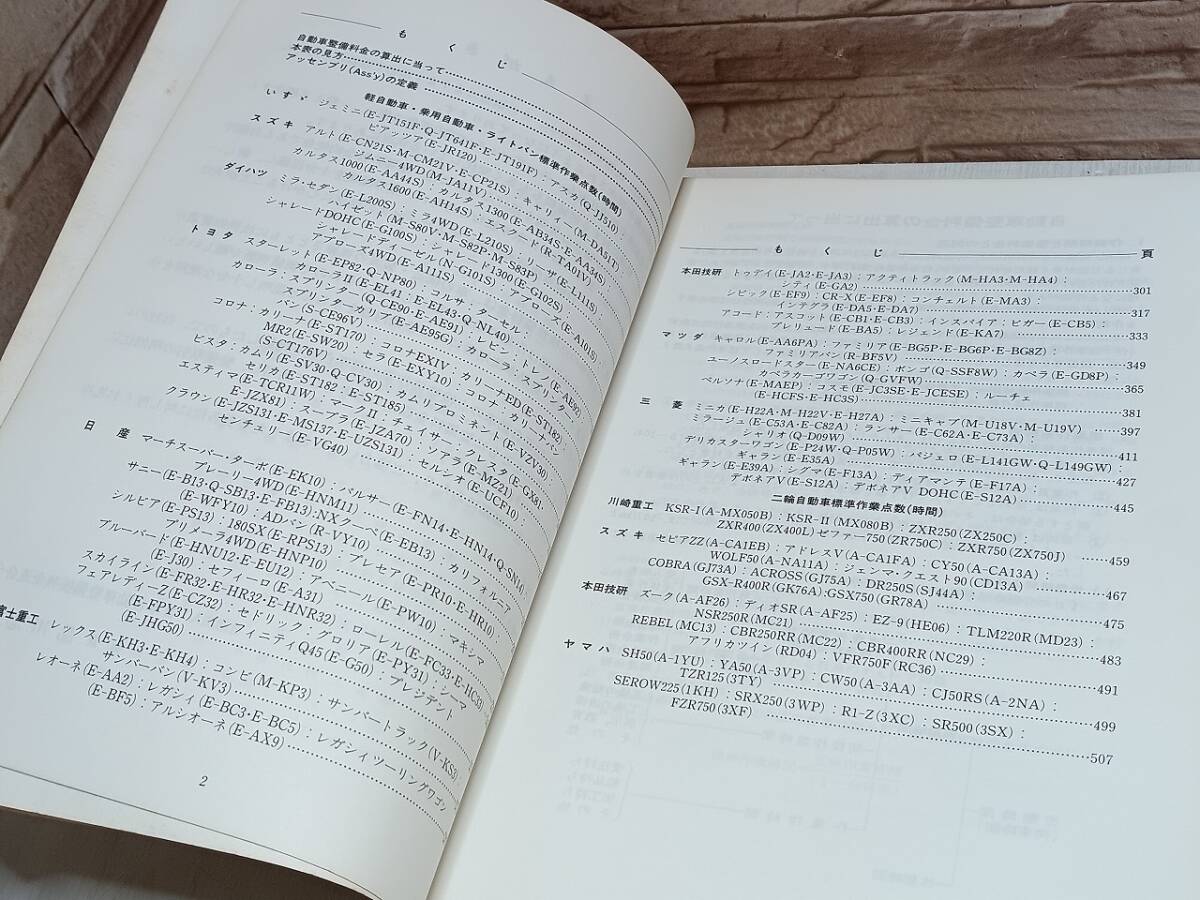 もくじ
自動車整備料金の算出に当って
本表の見方
アッセンブリ(Ass'y)の定義
軽自動車・乗用自動車・ライトバン標準作業点数(時間)
いすゞ ジェミニ(E-JT151F・Q-JT641F・E-JT191F)：アスカ(Q-JJ510)
ピアッツァ(E-JR120)
スズキ アルト(E-CN21S・M-CM21V・E-CP21S)：キャリィー(M-DA51T)
ジムニー4WD(M-JA11V)
カルタス1000(E-AA44S)：カルタス1300(E-AB34S・E-AA34S)
カルタス1600(E-AH14S)：エスクード(R-TA01V)
ダイハツ ミラ・セダン(E-L200S)：ミラ4WD(E-L210S)：リーザ(E-L111S)
ハイゼット(M-S80V・M-S82P・M-S83P)
シャレードDOHC(E-G100S)：シャレード1300(E-G102S)
シャレードディーゼル(N-G101S)：アプローズ(E-A101S)
アプローズ4WD(E-A111S)
トヨタ スターレット(E-EP82・Q-NP80)：コルサ・ターセル・
カローラII(E-EL41・E-EL43・Q-NL40)
カローラ・スプリンター(Q-CE90・E-AE91)：レビン・トレノ(E-AE92)
スプリンターカリブ(E-AE95G)：カローラ・スプリンター
バン(S-CE96V)
コロナ・カリーナ(E-ST170)：コロナEXIV・カリーナED(E-ST182)
MR2(E-SW20)：セラ(E-EXY10)：コロナ・カリーナバン
(S-CT176V)
ビスタ・カムリ(E-SV30・Q-CV30)：カムリプロミネント(E-VZV30)
セリカ(E-ST182・E-ST185)
エスティマ(E-TCR11W)：マークII・チェイサー・クレスタ(E-GX81・
E-JZX81)：スープラ(E-JZA70)：ソアラ(E-MZ21)
クラウン(E-JZS131・E-MS137・E-UZS131)：セルシオ(E-UCF10)
センチュリー(E-VG40)
日産 マーチスーパー・ターボ(E-EK10)：パルサー(E-FN14・E-HN14・Q-SN14)
プレーリー4WD(E-HNM11)
サニー(E-B13・Q-SB13・E-FB13)：NXクーペ(E-EB13)：カリフォルニア
(E-WFY10)：ADバン(R-VY10)
シルビア(E-PS13)：180SX(E-RPS13)：プレセア(E-PR10・E-HR10)
プリメーラ4WD(E-HNP10)
ブルーバード(E-HNU12・E-EU12)：アベニール(E-PW10)：マキシマ
(E-J30)：セフィーロ(E-A31)
スカイライン(E-FR32・E-HR32・E-HNR32)：ローレル(E-FC33・E-HC33)
フェアレディーZ(E-CZ32)：セドリック・グロリア(E-PY31)：シーマ
(E-FPY31)：インフィニティQ45(E-G50)：プレジデント
(E-JHG50)
富士重工 レックス(E-KH3・E-KH4)：コンビ(M-KP3)：サンバートラック(V-KS3)
サンバーバン(V-KV3)
レオーネ(E-AA2)：レガシィ(E-BC3・E-BC5)：レガシィツーリングワゴン
(E-BF5)：アルシオーネ(E-AX9)
2
もくじ 頁
本田技研 トゥデイ(E-JA2・E-JA3)：アクティトラック(M-HA3・M-HA4)：
シティ(E-GA2) 301
シビック(E-EF9)：CR-X(E-EF8)：コンチェルト(E-MA3)：
インテグラ(E-DA5・E-DA7) 317
アコード：アスコット(E-CB1・E-CB3)：インスパイア：ビガー(E-CB5)：
プレリュード(E-BA5)：レジェンド(E-KA7) 333
マツダ キャロル(E-AA6PA)：ファミリア(E-BG5P・E-BG6P・E-BG8Z)：
ファミリアバン(R-BF5V) 349
ユーノスロードスター(E-NA6CE)：ボンゴ(Q-SSF8W)：カペラ(E-GD8P)：
カペラカーゴワゴン(Q-GVFW) 365
ペルソナ(E-MAEP)：コスモ(E-JC3SE・E-JCESE)：ルーチェ
(E-HCFS・E-HC3S) 381
三菱 ミニカ(E-H22A・M-H22V・E-H27A)：ミニキャブ(M-U18V・M-U19V) 397
ミラージュ(E-C53A・E-C82A)：ランサー(E-C62A・E-C73A)：
シャリオ(Q-D09W) 411
デリカスターワゴン(E-P24W・Q-P05W)：パジェロ(E-L141GW・Q-L149GW)：
ギャラン(E-E35A) 427
ギャラン(E-E39A)：シグマ(E-F13A)：ディアマンテ(E-F17A)：
デボネアV(E-S12A)：デボネアV DOHC(E-S12A) 445
二輪自動車標準作業点数(時間)
川崎重工 KSR-I(A-MX050B)：KSR-II(MX080B)：ZXR250(ZX250C)：
ZXR400(ZX400L)ゼファー750(ZR750C)：ZXR750(ZX750J) 459
スズキ セピアZZ(A-CA1EB)：アドレスV(A-CA1FA)：CY50(A-CA13A)：
WOLF50(A-NA11A)：ジェンマ・クエスト90(CD13A) 467
COBRA(GJ73A)：ACROSS(GJ75A)：DR250S(SJ44A)：
GSX-R400R(GK76A)：GSX750(GR78A) 475
本田技研 ズーク(A-AF26)：ディオSR(A-AF25)：EZ-9(HE06)：TLM220R(MD23)：
NSR250R(MC21) 483
REBEL(MC13)：CBR250RR(MC22)：CBR400RR(NC29)：
アフリカツイン(RD04)：VFR750F(RC36) 491
ヤマハ SH50(A-1YU)：YA50(A-3VP)：CW50(A-3AA)：CJ50RS(A-2NA)：
TZR125(3TY) 499
SEROW225(1KH)：SRX250(3WP)：R1-Z(3XC)：SR500(3SX)：
FZR750(3XF) 507